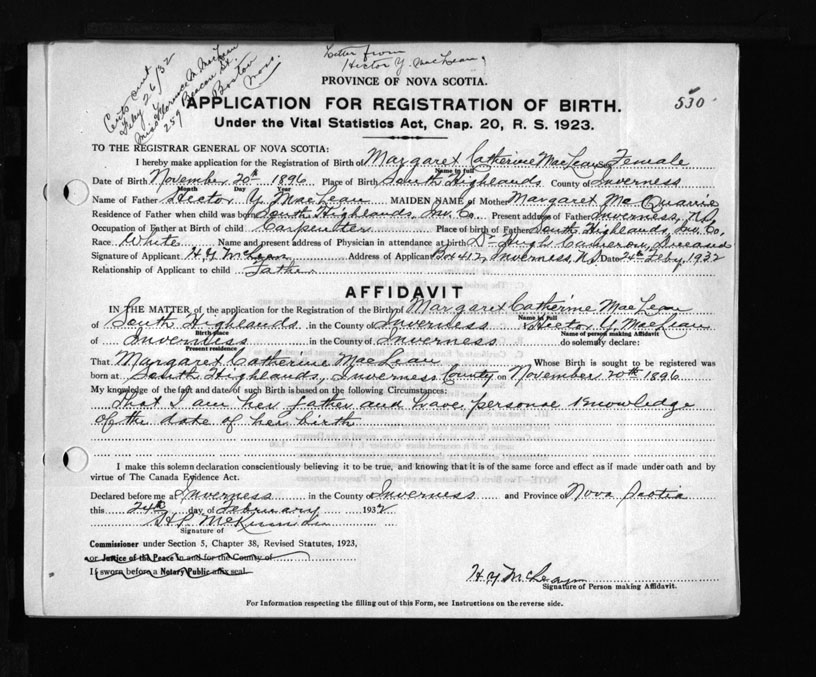 Letter from
Hector Y. MacLean,
Certs sent
Feby 26/32
Miss Florence M. MacLean
259 Beacon St.
Boston
Mass.
PROVINCE OF NOVA SCOTIA.
APPLICATION FOR REGISTRATION OF BIRTH.
530
Under the Vital Statistics Act, Chap. 20, R. S. 1923.
TO THE REGISTRAR GENERAL OF NOVA SCOTIA:
I hereby make application for the Registration of Birth of Margaret Catherine MacLean, Female
Name in full
Date of Birth November 20th 1896 Place of Birth South Highlands County of Inverness
Month Day Year
Name of Father Hector Y. MacLean MAIDEN NAME of Mother Margaret McQuarrie
Residence of Father when child was born South Highlands, Inv. Co. Present address of Father Inverness, N.S.
Occupation of Father at Birth of child Carpenter Place of birth of Father South Highlands, Inv. Co.
Race White Name and present address of Physician in attendance at birth Dr. Hugh Cameron, Deceased
Signature of Applicant H Y McLean Address of Applicant Box 412, Inverness, N.S. Date 24th Feby. 1932
Relationship of Applicant to child Father
AFFIDAVIT
IN THE MATTER of the application for the Registration of the Birth of Margaret Catherine MacLean
Name in full
of South Highlands in the County of Inverness I, Hector Y. MacLean
Birth place Name of person making Affidavit
of Inverness in the County of Inverness do solemnly declare:
Present residence
That Margaret Catherine MacLean Whose Birth is sought to be registered was
born at South Highlands, Inverness County on November 20th 1896
My knowledge of the fact and date of such Birth is based on the following Circumstances:
That I am her father and have personal knowledge
of the date of her birth
I make this solemn declaration conscientiously believing it to be true, and knowing that it is of the same force and effect as if made under oath and by
virtue of The Canada Evidence Act.
Declared before me at Inverness in the County of Inverness and Province of Nova Scotia
this 24th day of February 1932
Signature of
Commissioner under Section 5, Chapter 38, Revised Statutes, 1923,
or Justice of the Peace in and for the County of
If sworn before a Notary Public affix seal.
H Y McLean
Signature of Person making Affidavit.
For Information respecting the filling out of this Form, see Instructions on the reverse side.